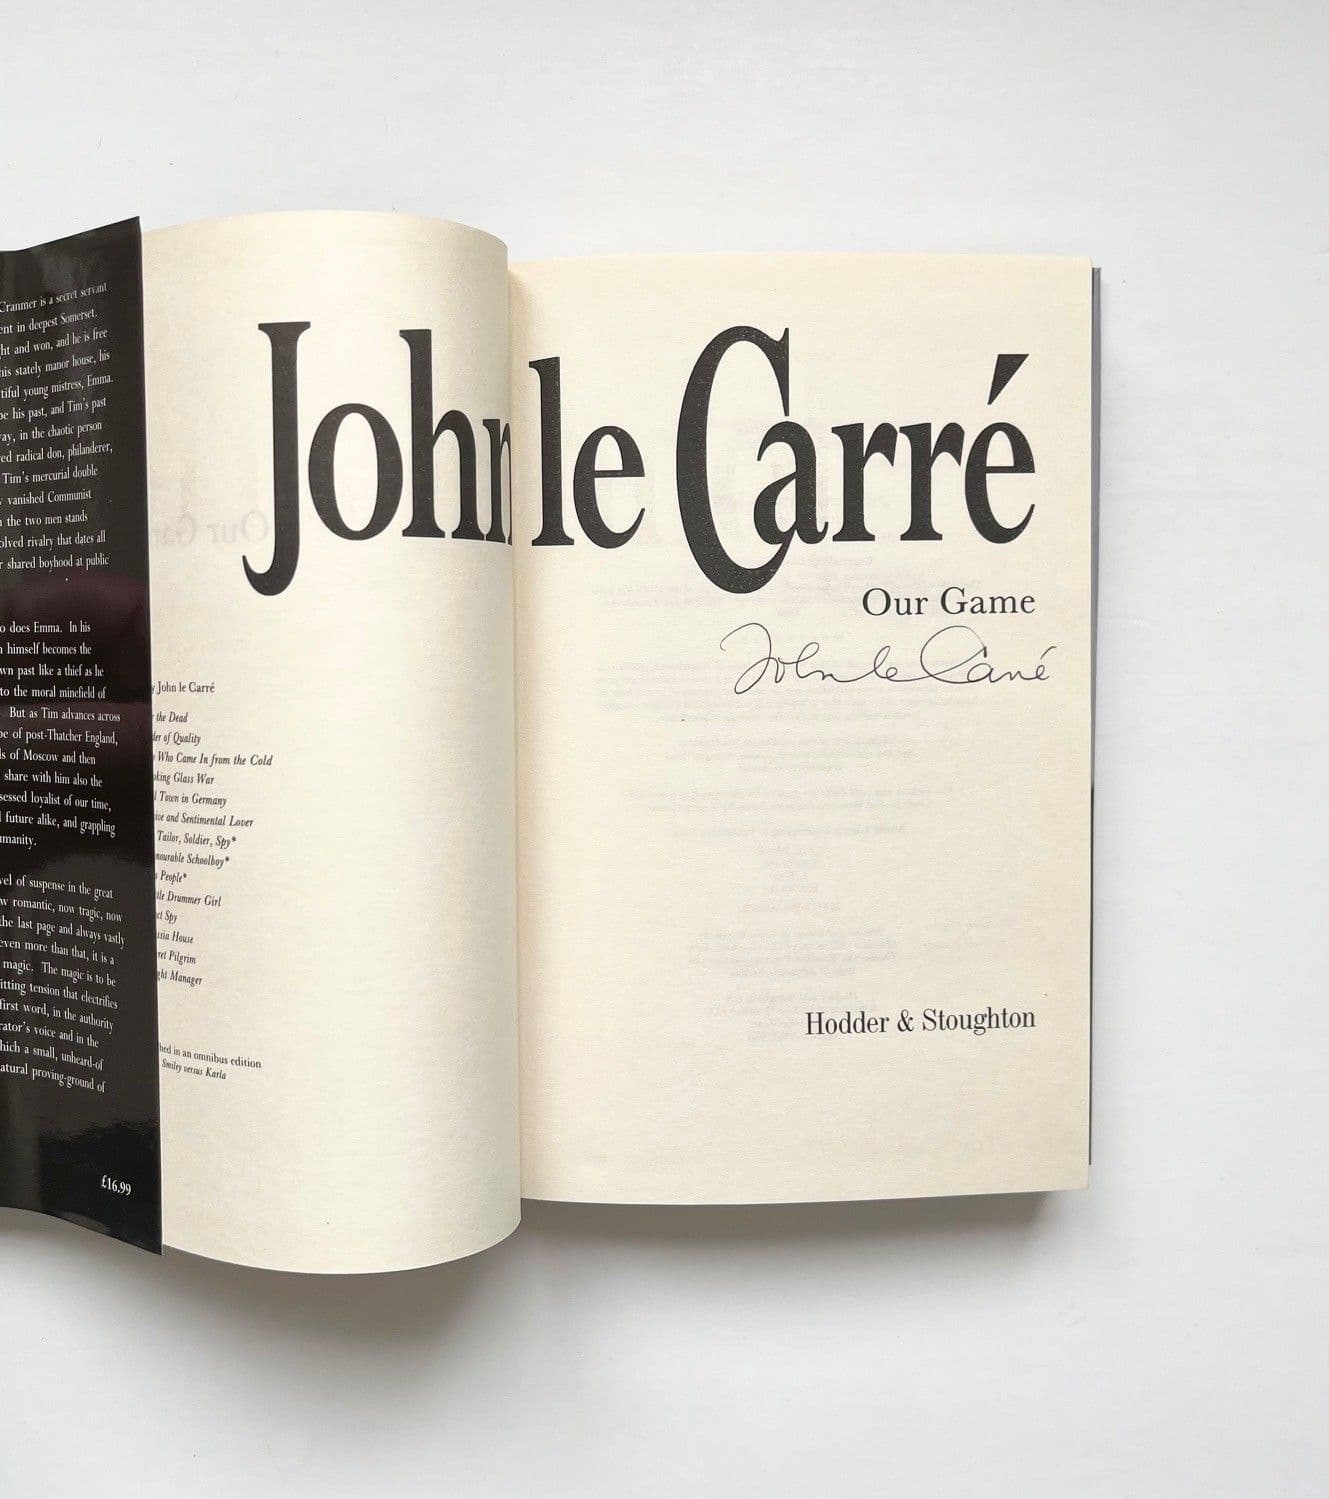 Cranmer is a secret servant
in deepest Somerset.
and won, and he is free
his stately manor house, his
young mistress, Emma.
his past, and Tim's past
in the chaotic person
radical don, philanderer,
Tim's mercurial double
vanished Communist
the two men stands
rivalry that dates all
shared boyhood at public
does Emma. In his
himself becomes the
past like a thief as he
to the moral minefield of
But as Tim advances across
of post-Thatcher England,
of Moscow and then
share with him also the
loyalist of our time,
future alike, and grappling
of suspense in the great
romantic, now tragic, now
the last page and always vastly
even more than that, it is a
magic. The magic is to be
tension that electrifies
first word, in the authority
voice and in the
which a small, unheard-of
proving-ground of
£16.99
John le Carré
John le Carré
the Dead
of Quality
Who Came In from the Cold
Glass War
Town in Germany
and Sentimental Lover
Tailor, Soldier, Spy*
Schoolboy*
People*
Drummer Girl
Spy
House
Pilgrim
Manager
in an omnibus edition
Smiley versus Karla
Our Game
John le Carré
Hodder & Stoughton